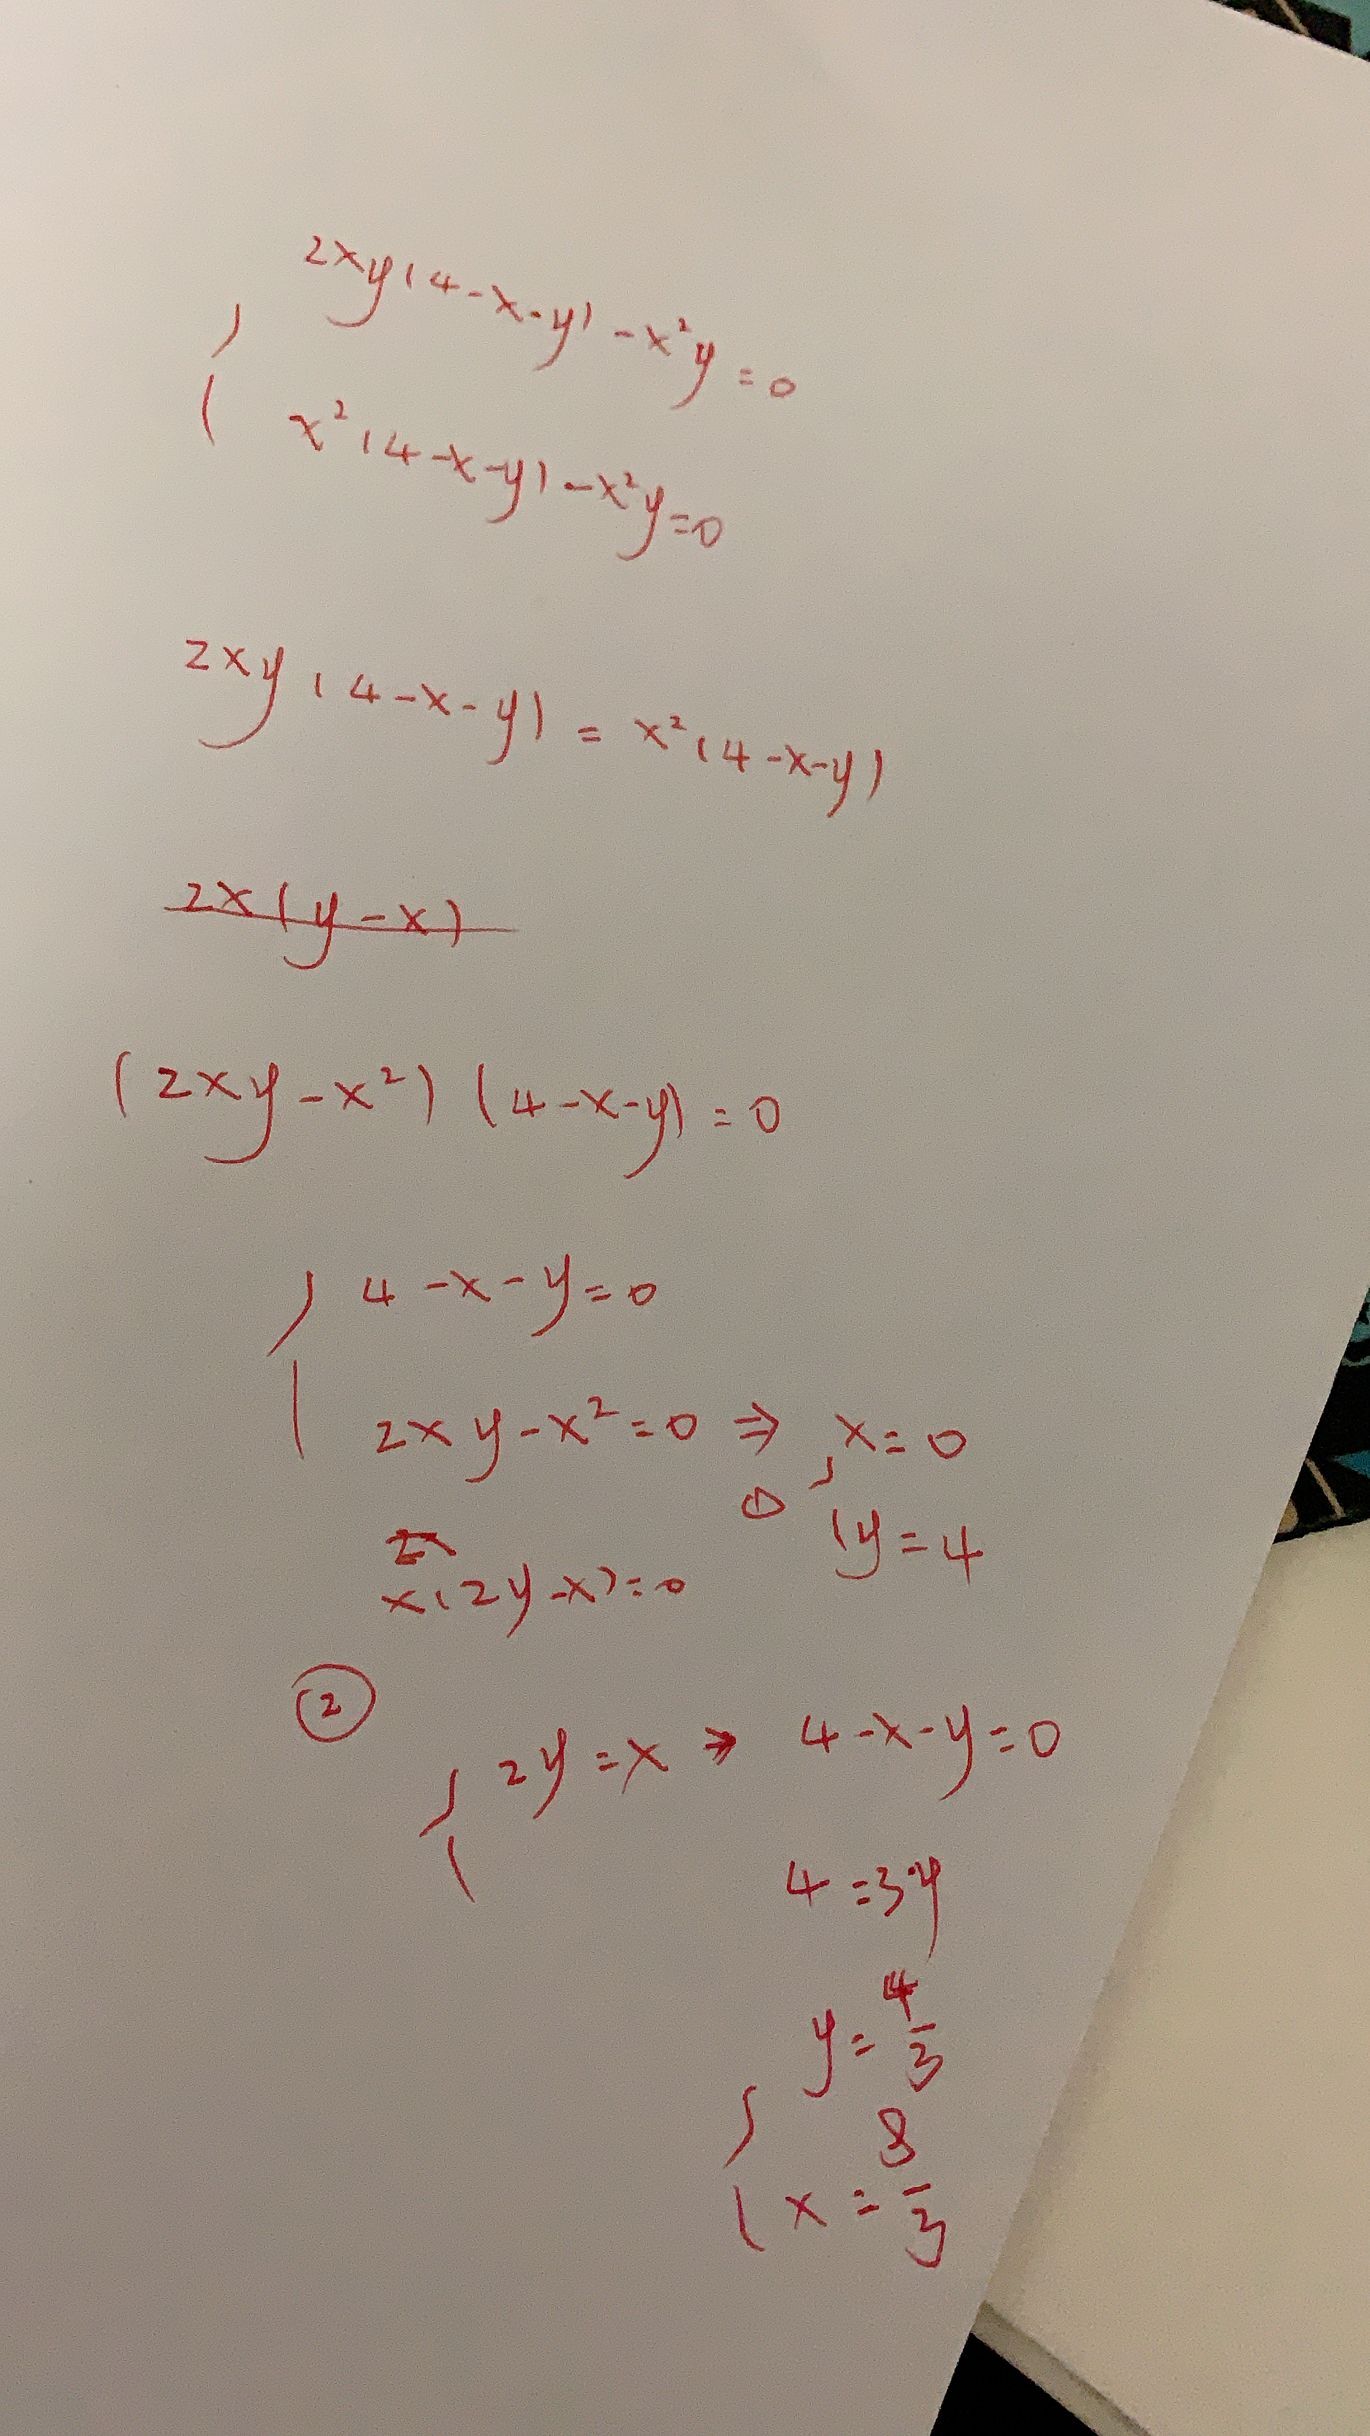 { 2xy(4-x-y)-x²y=0
x²(4-x-y)-x²y=0
2xy(4-x-y)=x²(4-x-y)
2x(y-x)
(2xy-x²)(4-x-y)=0
{ 4-x-y=0
2xy-x²=0 ⇒ { x=0
① y=4
2x
x(2y-x)=0
②
{ 2y=x → 4-x-y=0
4=3y
{ y=4/3
x=8/3